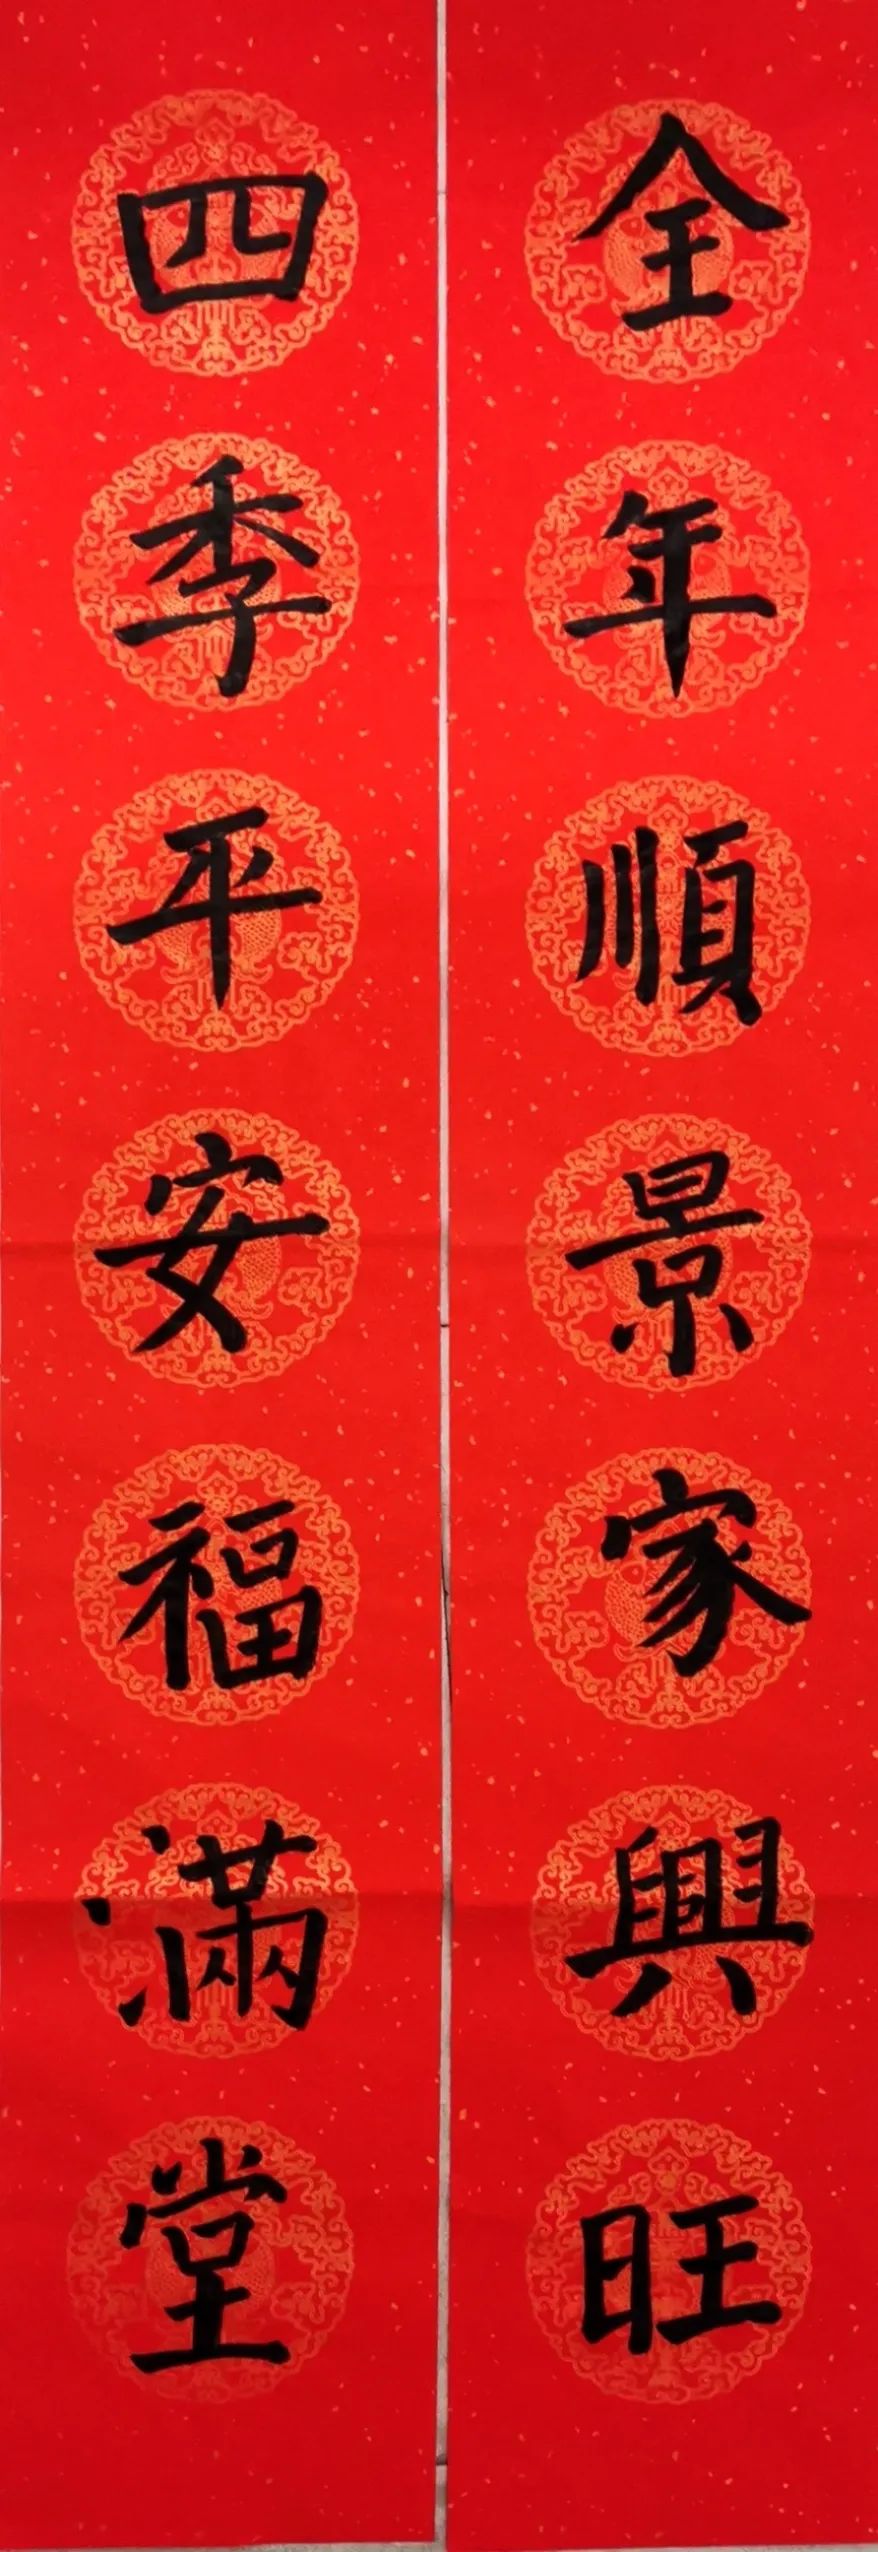 全年順景家興旺
四季平安福滿堂